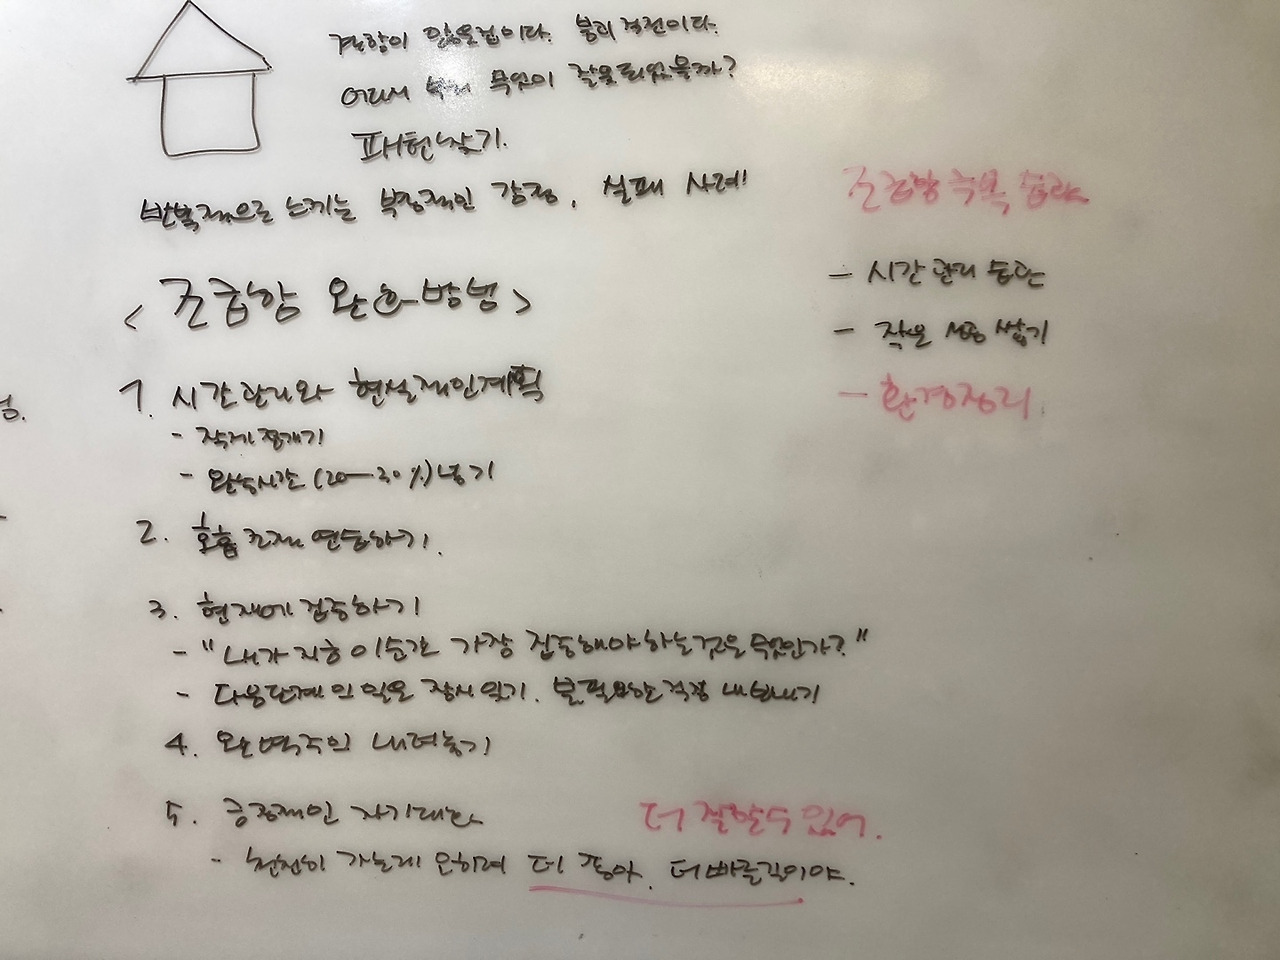 경향이 있을 것이다. 물리적
어디서 무엇이 잘못되었을까?
패턴찾기.
반복적으로 느끼는 부정적인 감정, 실패 사례!
<조급함 완화방법>
1. 시간관리와 현실적인계획
- 작게 쪼개기
- 완충시간 (20-30%) 넣기
2. 호흡조절 연습하기.
3. 현재에 집중하기
- "내가 지금 이 순간 가장 집중해야하는것은 무엇인가?"
- 다음단계의 일은 잠시 잊기. 불필요한 걱정 내보내기
4. 완벽주의 내려놓기
5. 긍정적인 자기대화
더 잘할수 있어.
- 천천히 가는게 오히려 더 좋아. 더 빠른길이야.
조급함 극복 습관
- 시간관리 습관
- 작은 성공 쌓기
- 환경정리.